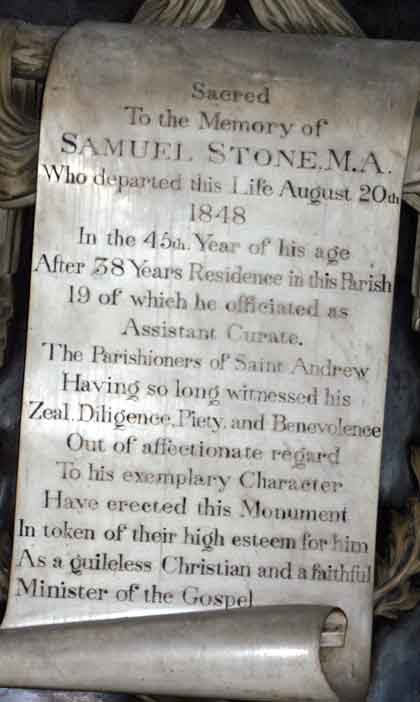 Sacred
To the Memory of
SAMUEL STONE. M.A.
Who departed this Life August 20th
1848
In the 45th. Year of his age
After 38 Years Residence in this Parish
19 of which he officiated as
Assistant Curate.
The Parishioners of Saint Andrew
Having so long witnessed his
Zeal, Diligence, Piety, and Benevolence
Out of affectionate regard
To his exemplary Character
Have erected this Monument
In token of their high esteem for him
As a guileless Christian and a faithful
Minister of the Gospel